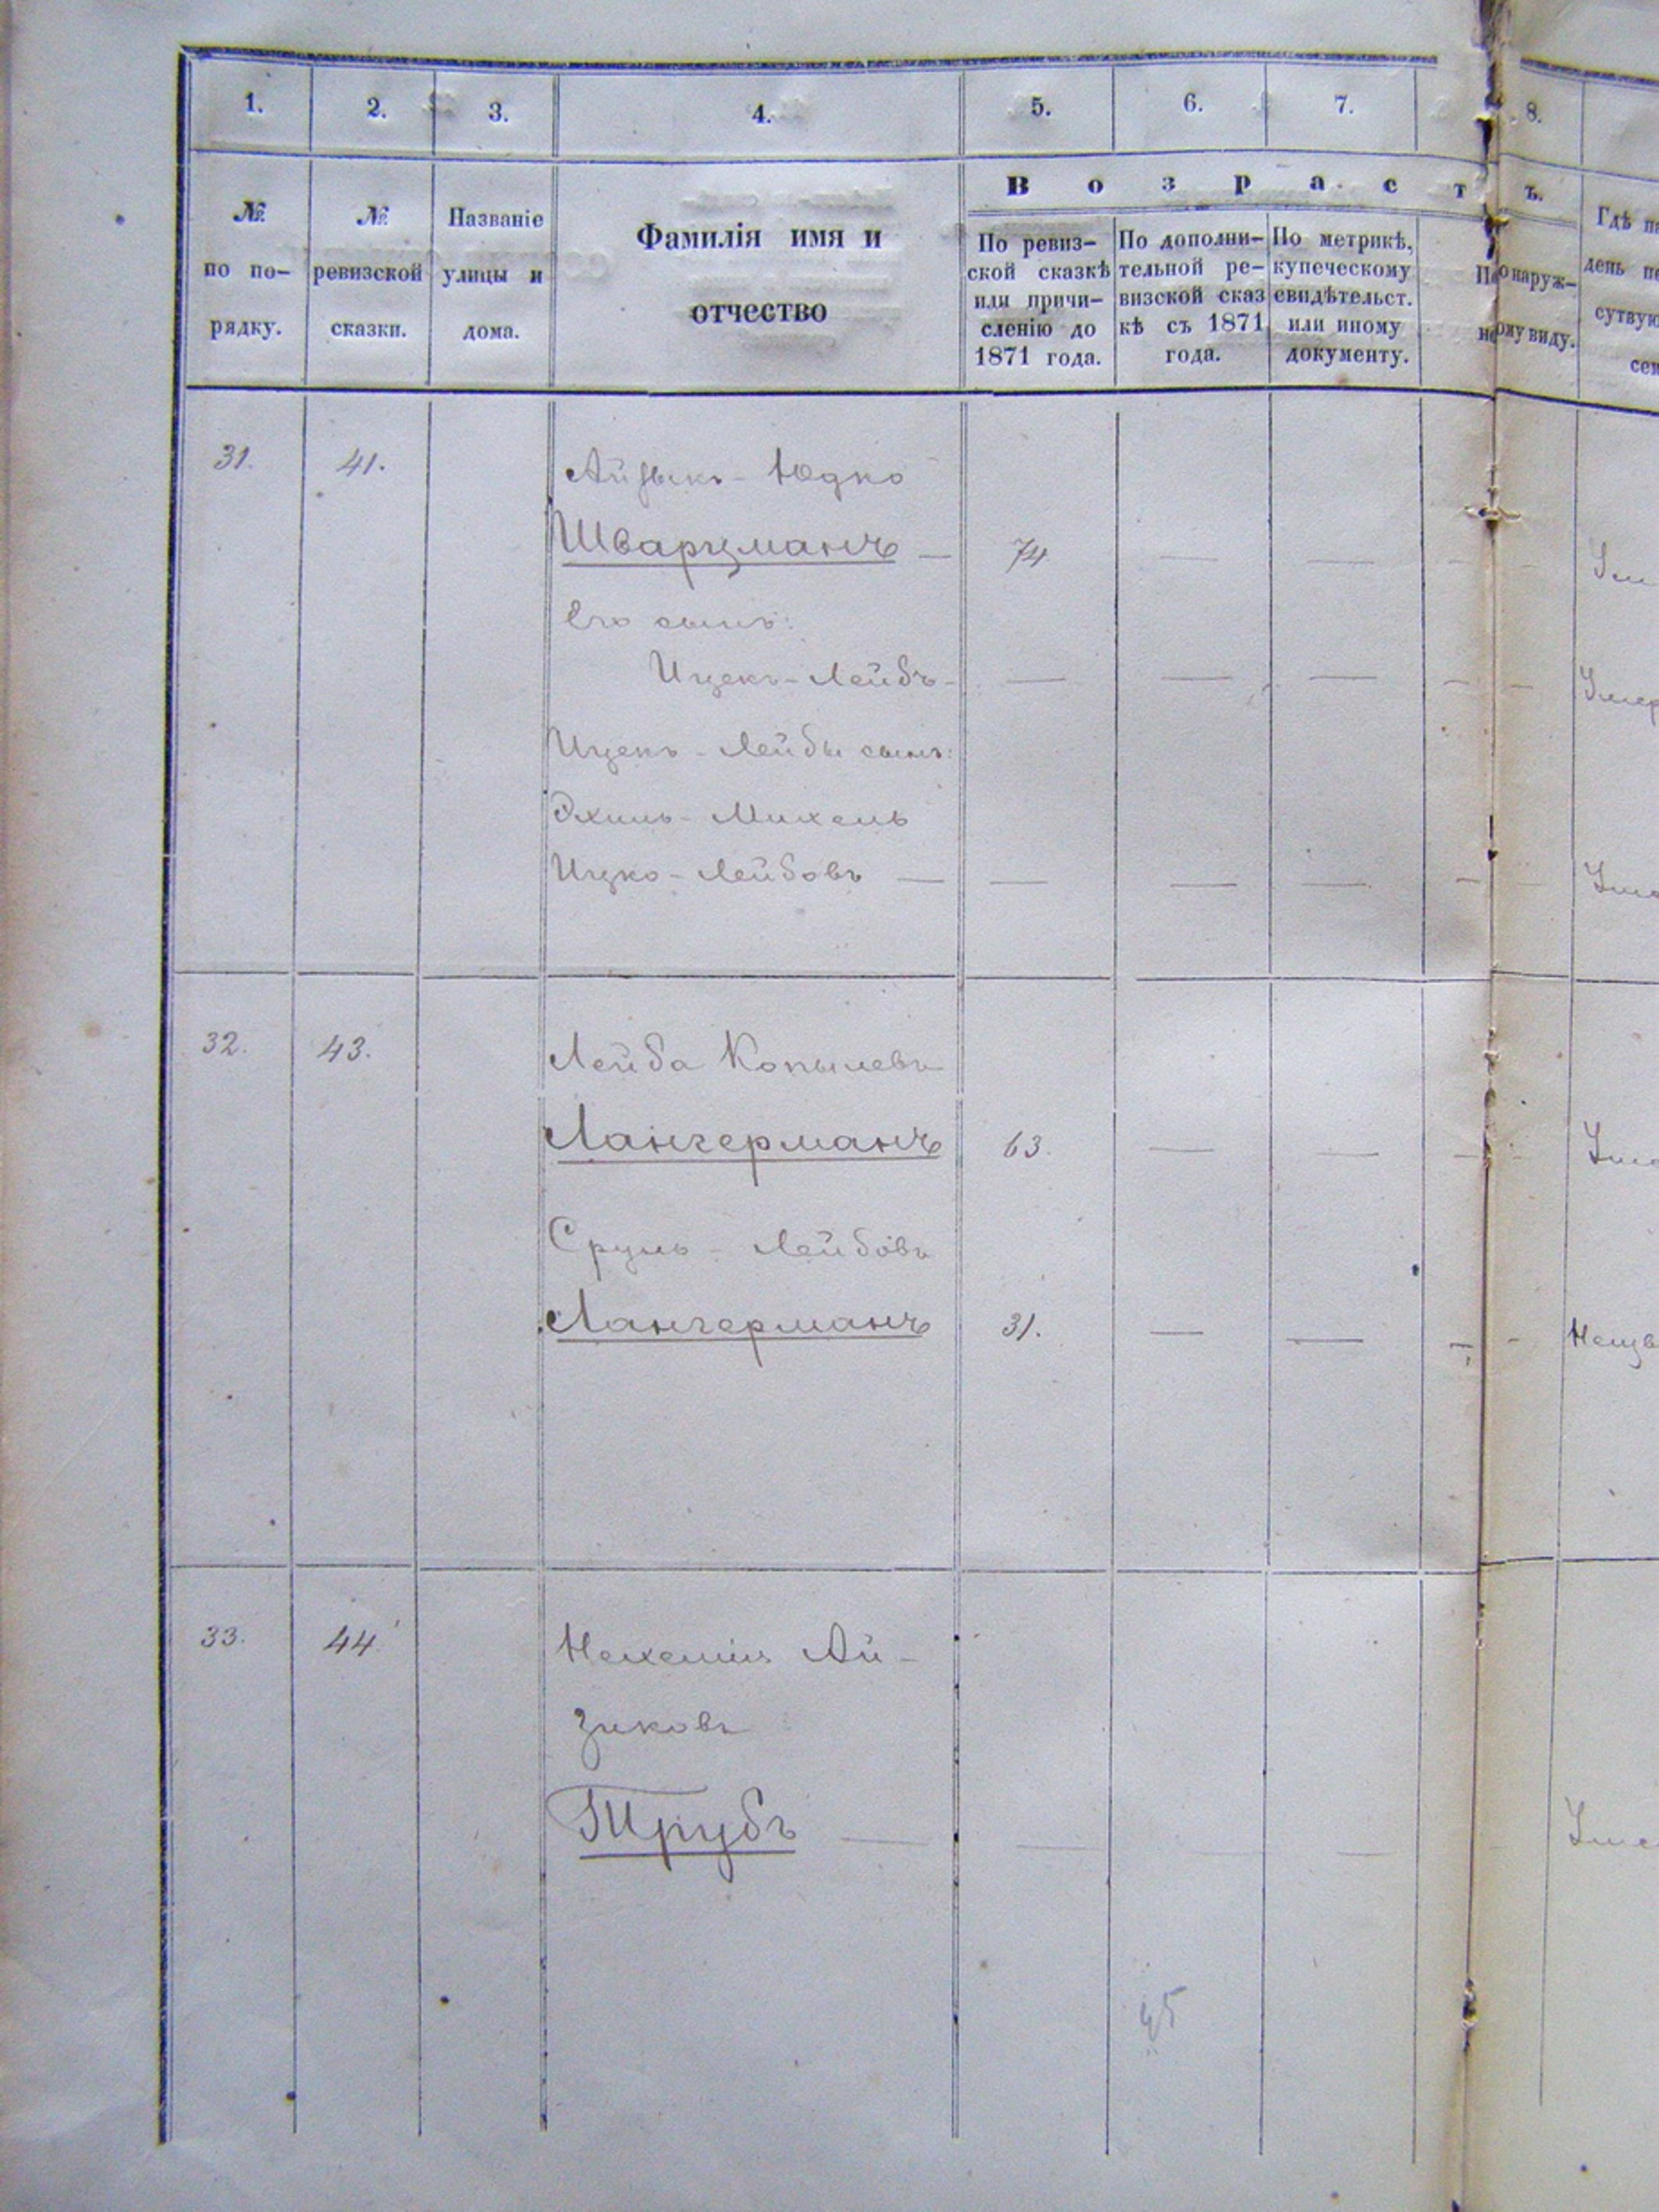 1. 2. 3. 4. 5. 6. 7. 8.
В о з р а с т ъ.
№ по по-
рядку.
№ ревизской
сказки.
Названіе
улицы и
дома.
Фамилія имя и
отчество
По ревиз-
ской сказкѣ
или причи-
сленію до
1871 года.
По дополни-
тельной ре-
визской сказ
кѣ съ 1871
года.
По метрикѣ,
купеческому
свидѣтельст.
или иному
документу.
По наруж-
ному виду.
Гдѣ
день
сутвую
31. 41. Айзыкъ - Юдко
Шварцманъ — 74 — — — —
Его сынъ:
Ицекъ - Лейбъ - — — — — —
Ицекъ - Лейбы сынъ:
Эхиль - Михель
Ицко - Лейбовъ — — — — — —
32. 43. Лейба Копылевъ
Лангерманъ 63. — — — —
Сруль - Лейбовъ
Лангерманъ 31. — — — —
33. 44 Нехемія Ай-
зиковъ
Трубъ — — — —
45